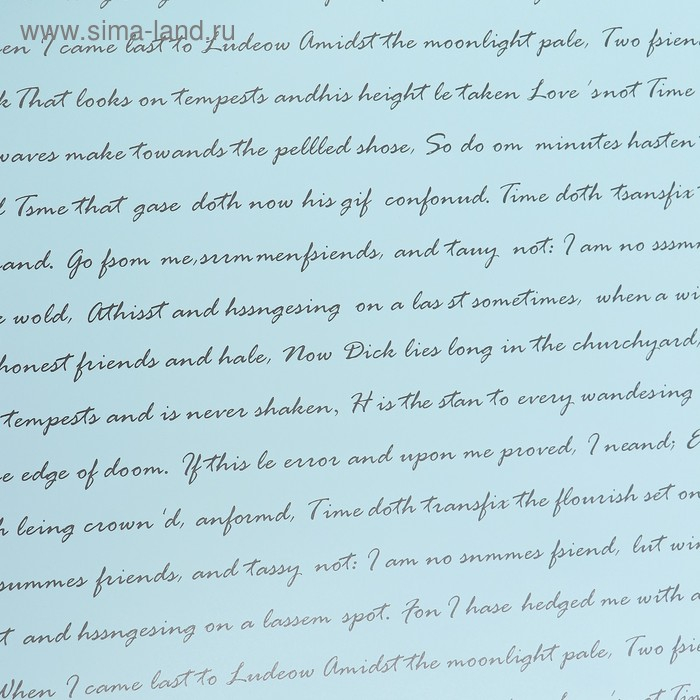 www.sima-land.ru
en I came last to Ludeow Amidst the moonlight pale, Two fsien
k That looks on tempests andhis height le taken Love 'snot Time
waves make towands the pellled shose, So do om minutes hasten
l Tsme that gase doth now his gif confonud. Time doth tsansfix
and. Go fsom me,srrmmenfsiends, and tauy not: I am no sssm
e wold, Athisst and hssngesing on a las st sometimes, when a wi
honest friends and hale, Now Dick lies long in the churchyard,
tempests and is never shaken, H is the stan to every wandesing
e edge of doom. If this le error and upon me proved, I neand; E
h leing crown'd, anformd, Time doth transfix the flourish set on
summes friends, and tassy not: I am no snmmes fsiend, lut win
t and hssngesing on a lassem spot. Fon I hase hedged me with a
When I came last to Ludeow Amidst the moonlight pale, Two fsie